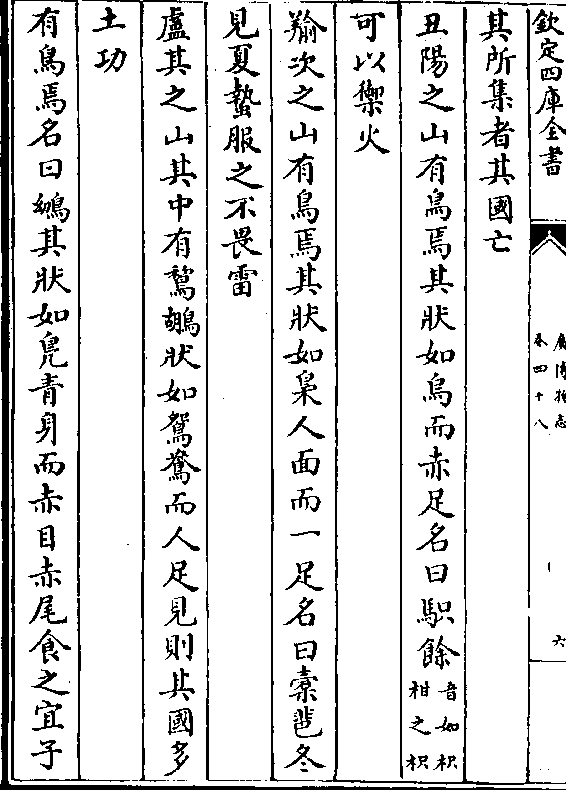 欽定四庫全書
廣博物志
卷四十八
六
其所集者其國亡
丑陽之山有鳥焉其狀如烏而赤足名曰䳅餘音如枳柑之枳
可以禦火
羭次之山有鳥焉其狀如梟人面而一足名曰橐𩇯冬
見夏蟄服之不畏雷
盧其之山其中有鵹鶘狀如鴛鴦而人足見則其國多
土功
有鳥焉名曰鴢其狀如鳧青身而赤目赤尾食之宜子